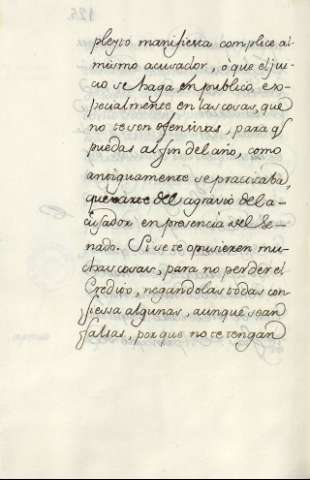 pleyto manifiesta complice al
mismo acusador, ò que el jui-
cio se haga en publico, ex-
pecialmente en las cosas, que
no te son ofensivas, para q̃
puedas al fin del año, como
antiguamente se practicaba,
quexarte del agravio del a-
cusador en presencia del Se-
nado. Si se te opusieren mu-
chas cosas, para no perder el
Credito, negandolas todas con-
fiessa algunas, aunque sean
falsas, porque no te tengan